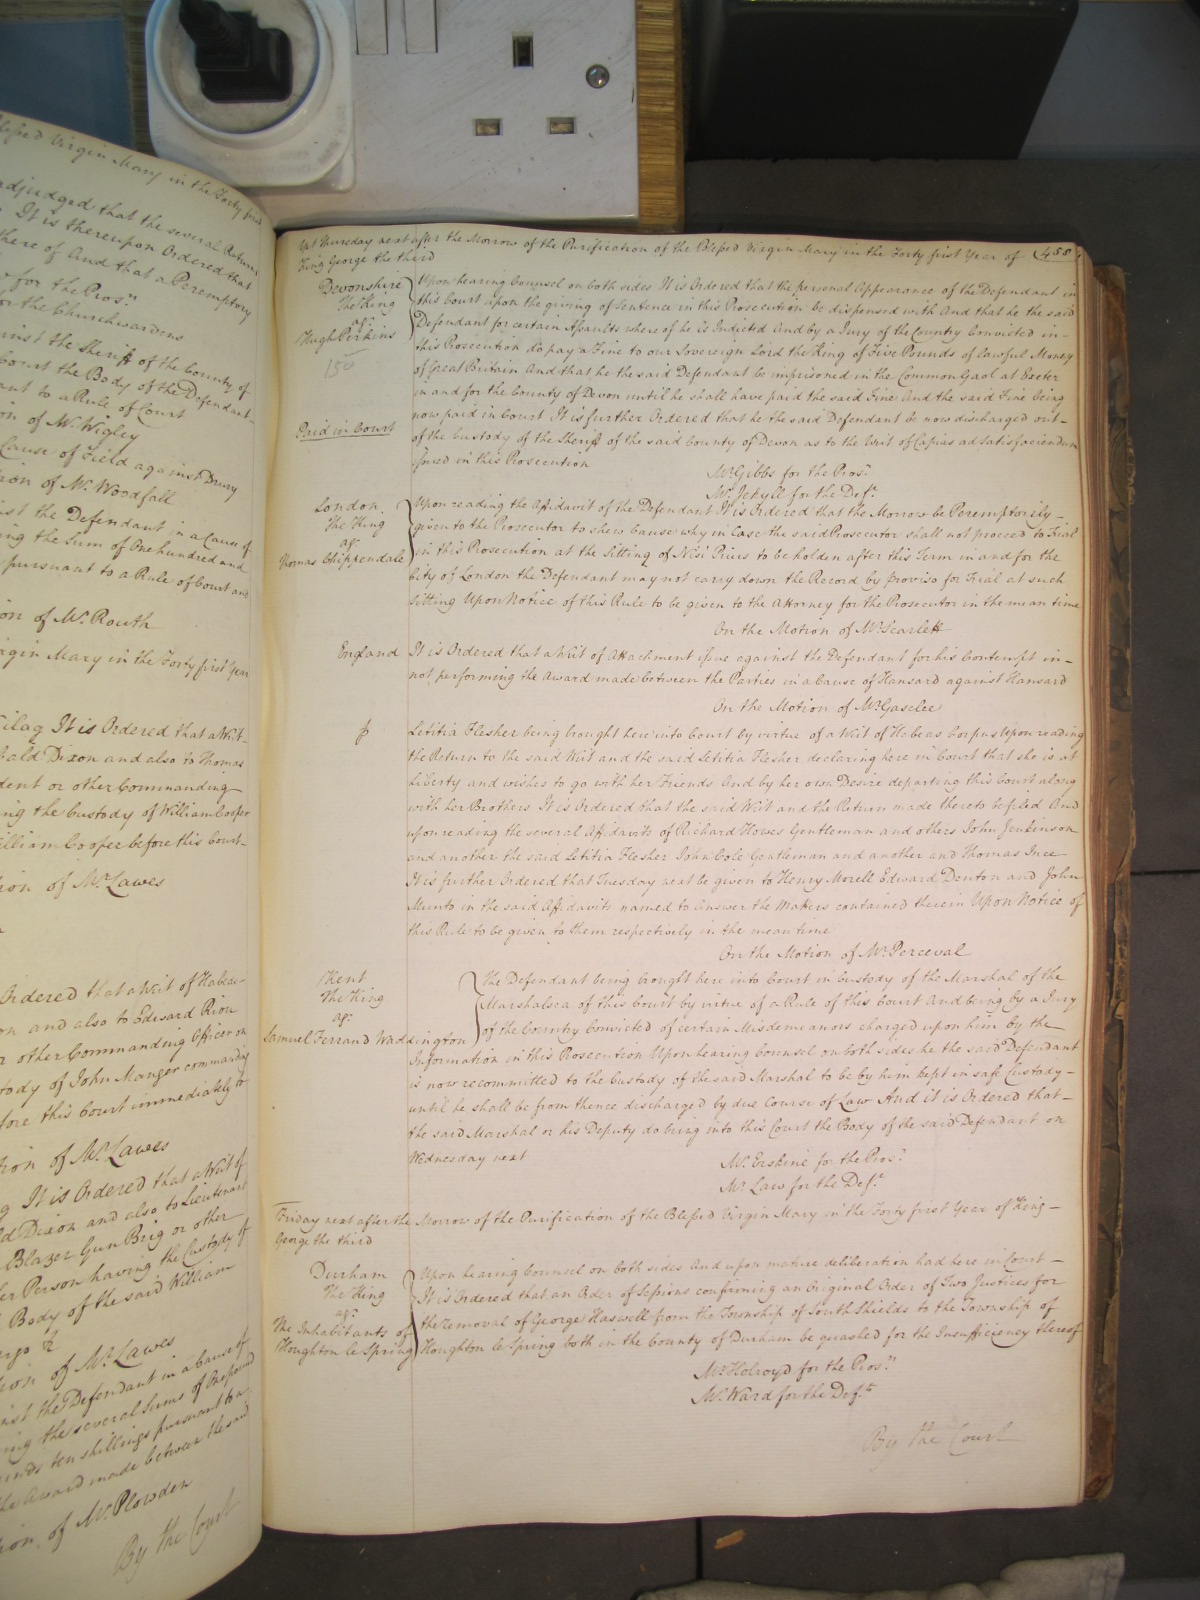 Blessed Virgin Mary in the Forty first
adjudged that the several Return
It is thereupon Ordered that
there of And that a Peremptory
for the Prosr
for the Churchwardens
against the Sheriff of the County of
Court the Body of the Defendant
to a Rule of Court
on of Mr Wigley
Cause of Field against Drury
ion of Mr Woodfall
the Defendant in a Cause of
ing the Sum of One hundred and
pursuant to a Rule of Court and
on of Mr Routh
Virgin Mary in the Forty first Year
It is Ordered that a Writ
Dixon and also to Thomas
dent or other Commanding
ing the Custody of William Cooper
William Cooper before this Court
ion of Mr Lawes
Ordered that a Writ of Habeas
on and also to Edward Riou
other Commanding Officer on
tody of John Manger commanding
fore this Court immediately to
tion of Mr Lawes
It is Ordered that a Writ of
Dixon and also to Lieutenant
Blazer Gun Brig or other
er Person having the Custody of
Body of the said William
tion of Mr Lawes
inst the Defendant in a Cause of
ing the several Sums of One pound
unds ten shillings pursuant to a
the Award made between the said
tion of Mr Plowden
By the Court
Yet Thursday next after the Morrow of the Purification of the Blessed Virgin Mary in the Forty first Year of 458
King George the third
Devonshire
The King
agt
Hugh Perkins
150
Upon hearing Counsel on both sides It is Ordered that the personal Appearance of the Defendant in
this Court upon the giving of Sentence in this Prosecution be dispensed with And that he the said
Defendant for certain Assaults whereof he is Indicted And by a Jury of the Country Convicted in
this Prosecution do pay a Fine to our Sovereign Lord the King of Five Pounds of lawful Money
of Great Britain And that he the said Defendant be imprisoned in the Common Gaol at Exeter
in and for the County of Devon until he shall have paid the said Fine And the said Fine being
now paid in Court It is further Ordered that he the said Defendant be now discharged out
Paid in Court
of the Custody of the Sheriff of the said County of Devon as to the Writ of Capias ad Satisfaciendum
issued in this Prosecution
Mr Gibbs for the Prosr
Mr Jekyll for the Deft
London
The King
agt
Thomas Chippendale
Upon reading the Affidavit of the Defendant It is Ordered that the Morrow be Peremptorily
given to the Prosecutor to shew Cause why in Case the said Prosecutor shall not proceed to Trial
in this Prosecution at the Sitting of Nisi Prius to be holden after this Term in and for the
City of London the Defendant may not carry down the Record by proviso for Trial at such
Sitting Upon Notice of this Rule to be given to the Attorney for the Prosecutor in the mean time
On the Motion of Mr Scarlett
England
It is Ordered that a Writ of Attachment issue against the Defendant for his Contempt in
not performing the Award made between the Parties in a Cause of Hansard against Hansard
On the Motion of Mr Gaselee
Letitia Flesher being brought here into Court by virtue of a Writ of Habeas Corpus Upon reading
the Return to the said Writ and the said Letitia Flesher declaring here in Court that she is at
Liberty and wishes to go with her Friends And by her own Desire departing this Court along
with her Brothers It is Ordered that the said Writ and the Return made thereto be filed And
upon reading the several Affidavits of Richard Howes Gentleman and others John Jenkinson
and another the said Letitia Flesher John Cole Gentleman and another and Thomas Ince
It is further Ordered that Tuesday next be given to Henry Morell Edward Denton and John
Munto in the said Affidavits named to Answer the Matters contained therein Upon Notice of
this Rule to be given to them respectively in the mean time
On the Motion of Mr Perceval
Kent
The King
agt
Samuel Ferrand Waddington
The Defendant being brought here into Court in Custody of the Marshal of the
Marshalsea of this Court by virtue of a Rule of this Court And being by a Jury
of the Country Convicted of certain Misdemeanors charged upon him by the
Information in this Prosecution Upon hearing Counsel on both sides he the said Defendant
is now recommitted to the Custody of the said Marshal to be by him kept in safe Custody
until he shall be from thence discharged by due Course of Law And it is Ordered that
the said Marshal or his Deputy do bring into this Court the Body of the said Defendant on
Wednesday next
Mr Erskine for the Prosr
Mr Law for the Deft
Friday next after the Morrow of the Purification of the Blessed Virgin Mary in the Forty first Year of King
George the third
Durham
The King
agt
The Inhabitants of
Houghton le Spring
Upon hearing Counsel on both sides And upon mature deliberation had here in Court
It is Ordered that an Order of Sessions confirming an Original Order of Two Justices for
the removal of George Haswell from the Township of South Shields to the Township of
Houghton le Spring both in the County of Durham be quashed for the Insufficiency thereof
Mr Holroyd for the Prosr
Mr Ward for the Deft
By the Court